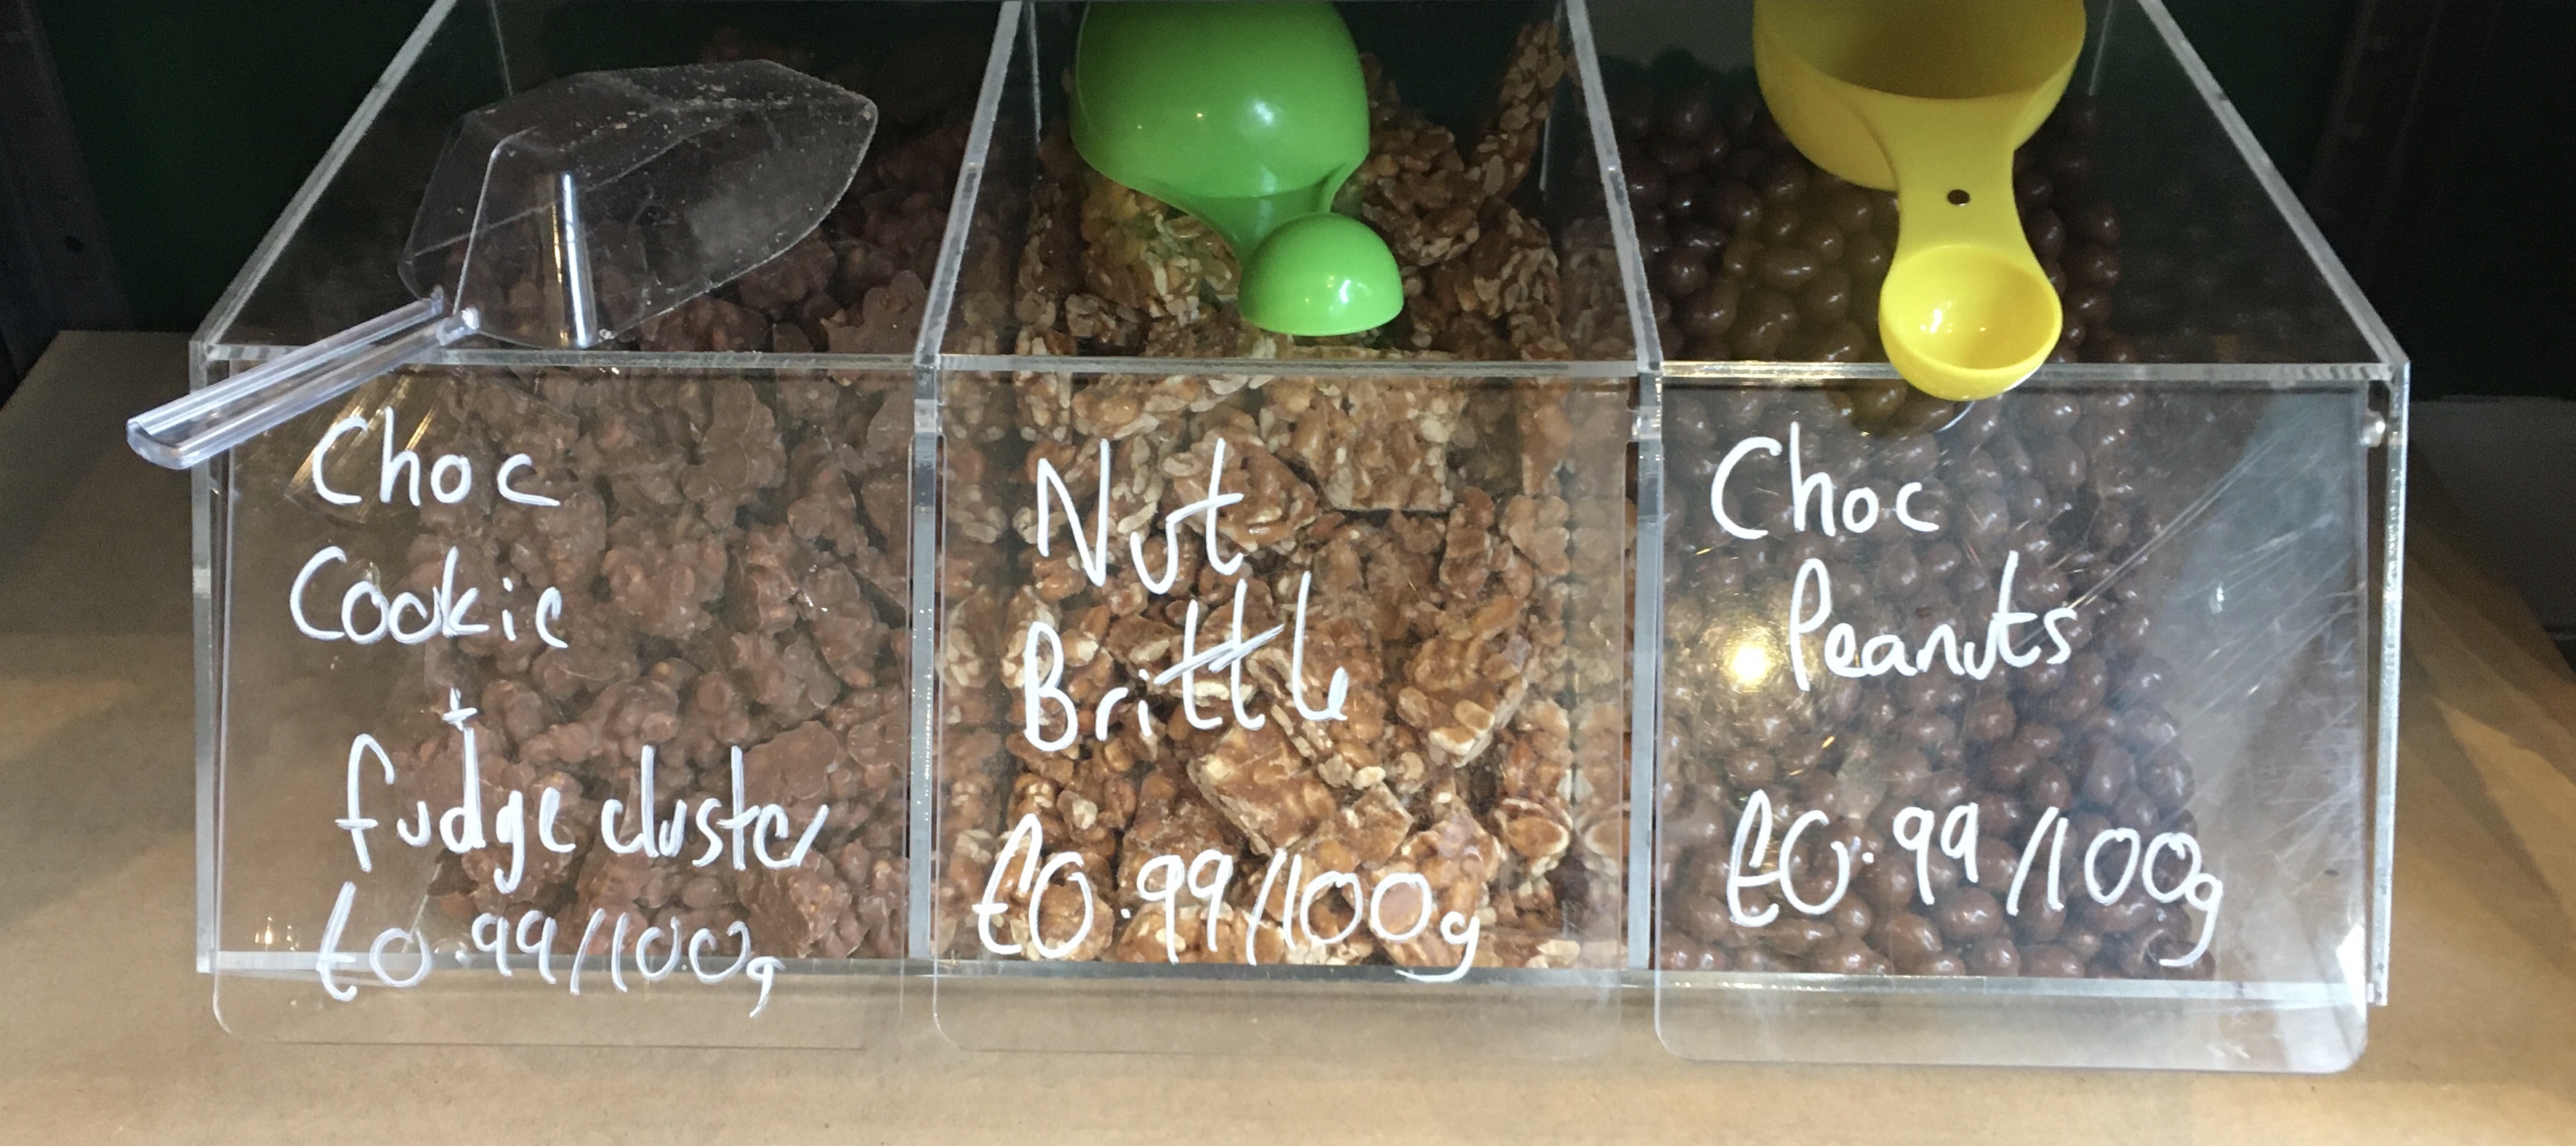 Choc
Cookie
+
fudge cluster
£0.99/100g
Nut
Brittle
£0.99/100g
Choc
Peanuts
£0.99/100g